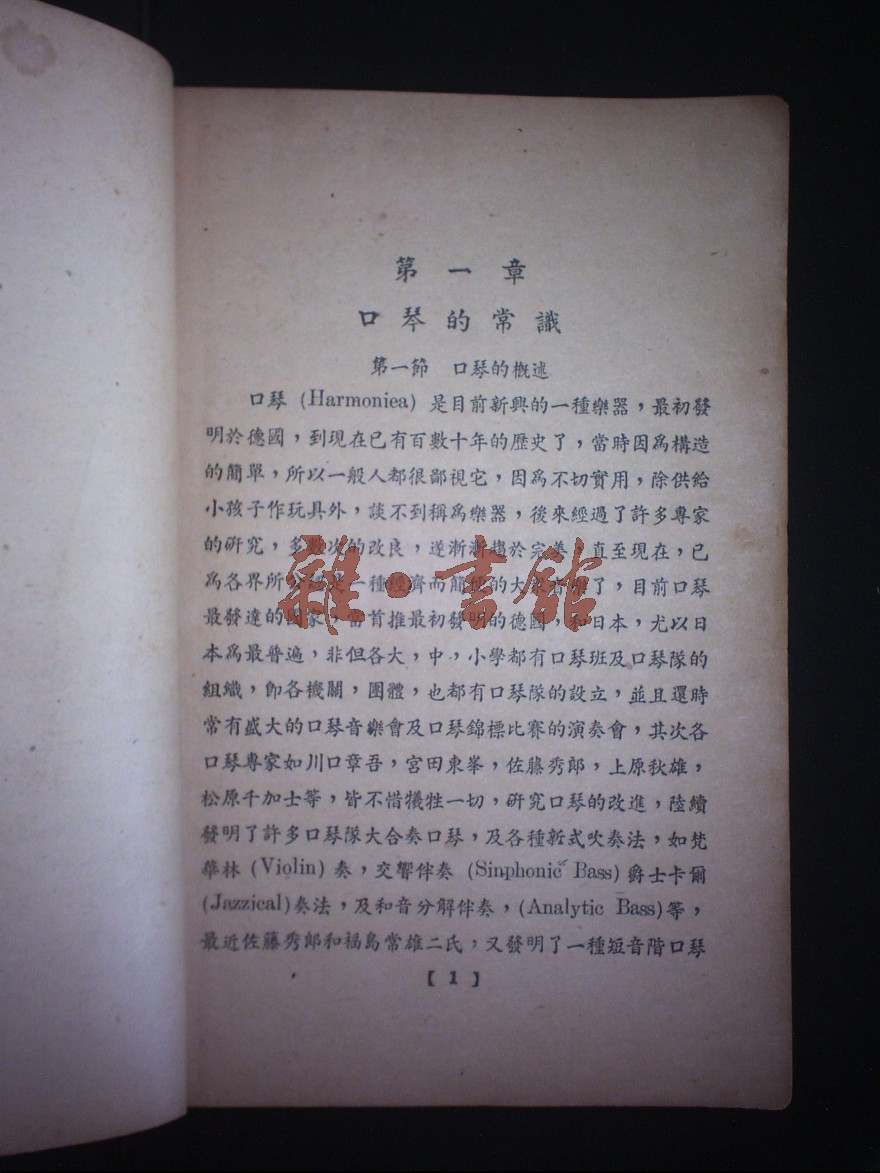 第一章
口琴的常識
第一節　口琴的概述
口琴 (Harmoniea) 是目前新興的一種樂器，最初發
明於德國，到現在已有百數十年的歷史了，當時因爲構造
的簡單，所以一般人都很鄙視它，因爲不切實用，除供給
小孩子作玩具外，談不到稱爲樂器，後來經過了許多專家
的硏究，多數次的改良，遂漸漸趨於完美，直至現在，已
爲各界所公認是一種經濟而簡便的大衆音樂了，目前口琴
最發達的國家，當首推最初發明的德國，和日本，尤以日
本爲最普遍，非但各大，中，小學都有口琴班及口琴隊的
組織，卽各機關，團體，也都有口琴隊的設立，並且還時
常有盛大的口琴音樂會及口琴錦標比賽的演奏會，其次各
口琴專家如川口章吾，宮田東峯，佐藤秀郎，上原秋雄，
松原千加士等，皆不惜犧牲一切，硏究口琴的改進，陸續
發明了許多口琴隊大合奏口琴，及各種新式吹奏法，如梵
華林 (Violin) 奏，交響伴奏 (Sinphonic Bass) 爵士卡爾
(Jazzical)奏法，及和音分解伴奏，(Analytic Bass)等，
最近佐藤秀郎和福島常雄二氏，又發明了一種短音階口琴
【1】
雜·書館